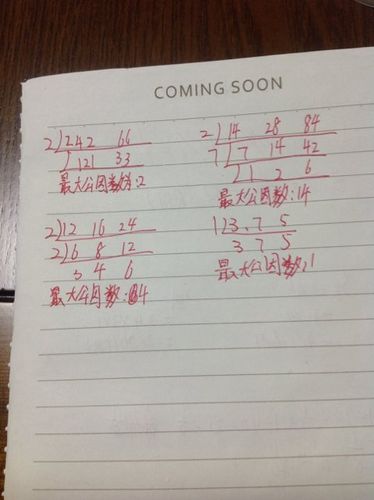 COMING SOON
2 242 66
121 33
最大公因数:2
2 14 28 84
7 7 14 42
1 2 6
最大公因数:14
2 12 16 24
2 6 8 12
3 4 6
最大公因数:4
1 3.7 5
3 7 5
最大公因数:1